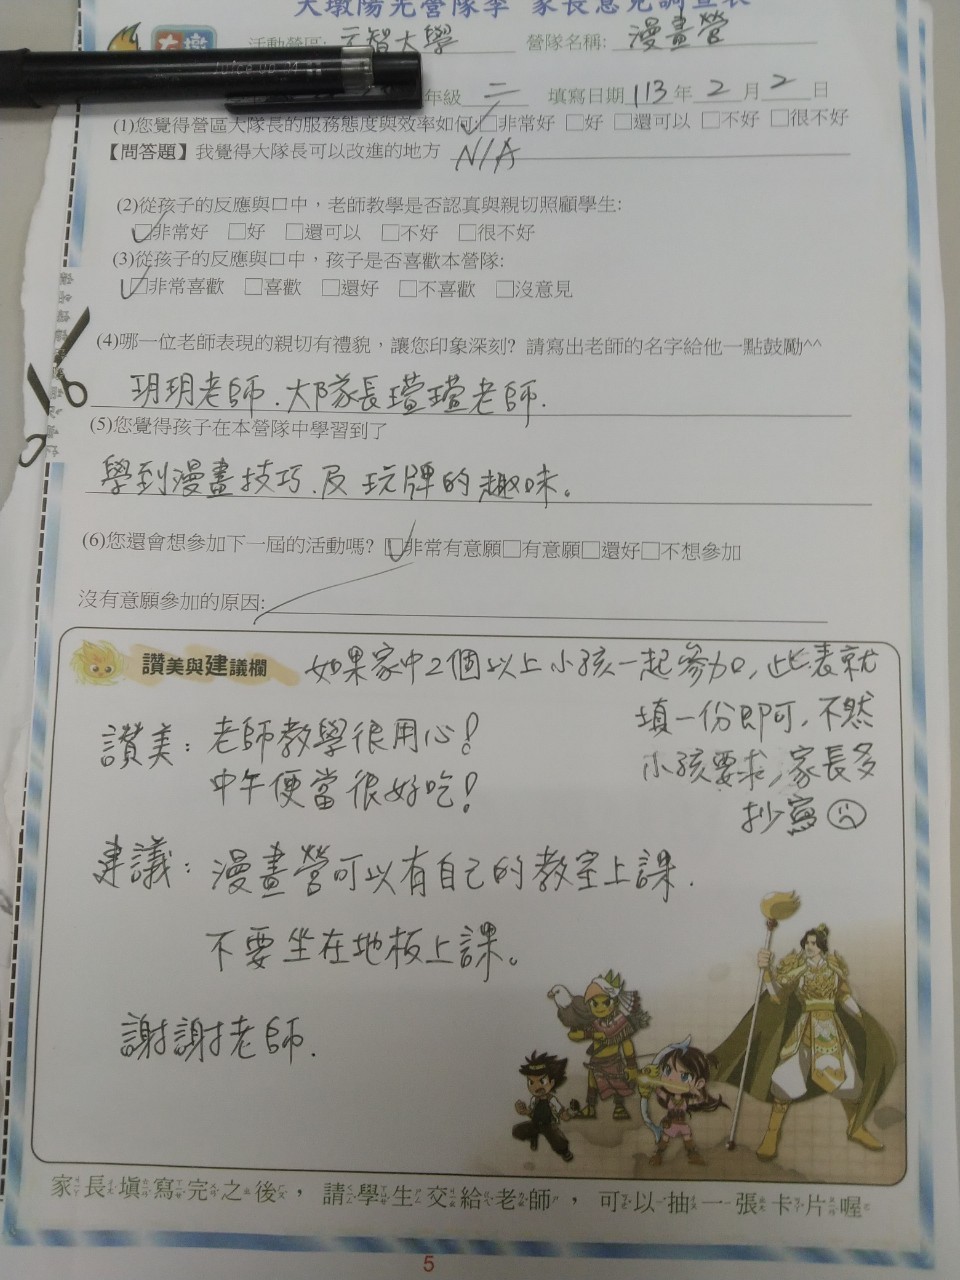 大墩陽光營隊季 家長意見調查表
大墩
活動營區: 元智大學 營隊名稱: 漫畫營
Juice up 04
年級 二 填寫日期 113 年 2 月 2 日
(1)您覺得營區大隊長的服務態度與效率如何: □非常好 □好 □還可以 □不好 □很不好
【問答題】我覺得大隊長可以改進的地方 N/A
(2)從孩子的反應與口中，老師教學是否認真與親切照顧學生:
□非常好 □好 □還可以 □不好 □很不好
(3)從孩子的反應與口中，孩子是否喜歡本營隊:
□非常喜歡 □喜歡 □還好 □不喜歡 □沒意見
(4)哪一位老師表現的親切有禮貌，讓您印象深刻? 請寫出老師的名字給他一點鼓勵^^
玥玥老師．大隊長瑄瑄老師．
(5)您覺得孩子在本營隊中學習到了
學到漫畫技巧．及玩牌的趣味。
(6)您還會想參加下一屆的活動嗎? □非常有意願□有意願□還好□不想參加
沒有意願參加的原因:
讚美與建議欄
如果家中2個以上小孩一起參加，此表就
填一份即可，不然
小孩要求，家長多
抄寫
讚美：老師教學很用心！
中午便當很好吃！
建議：漫畫營可以有自己的教室上課．
不要坐在地板上課。
謝謝老師．
家長填寫完之後，請學生交給老師，可以抽一張卡片喔
5